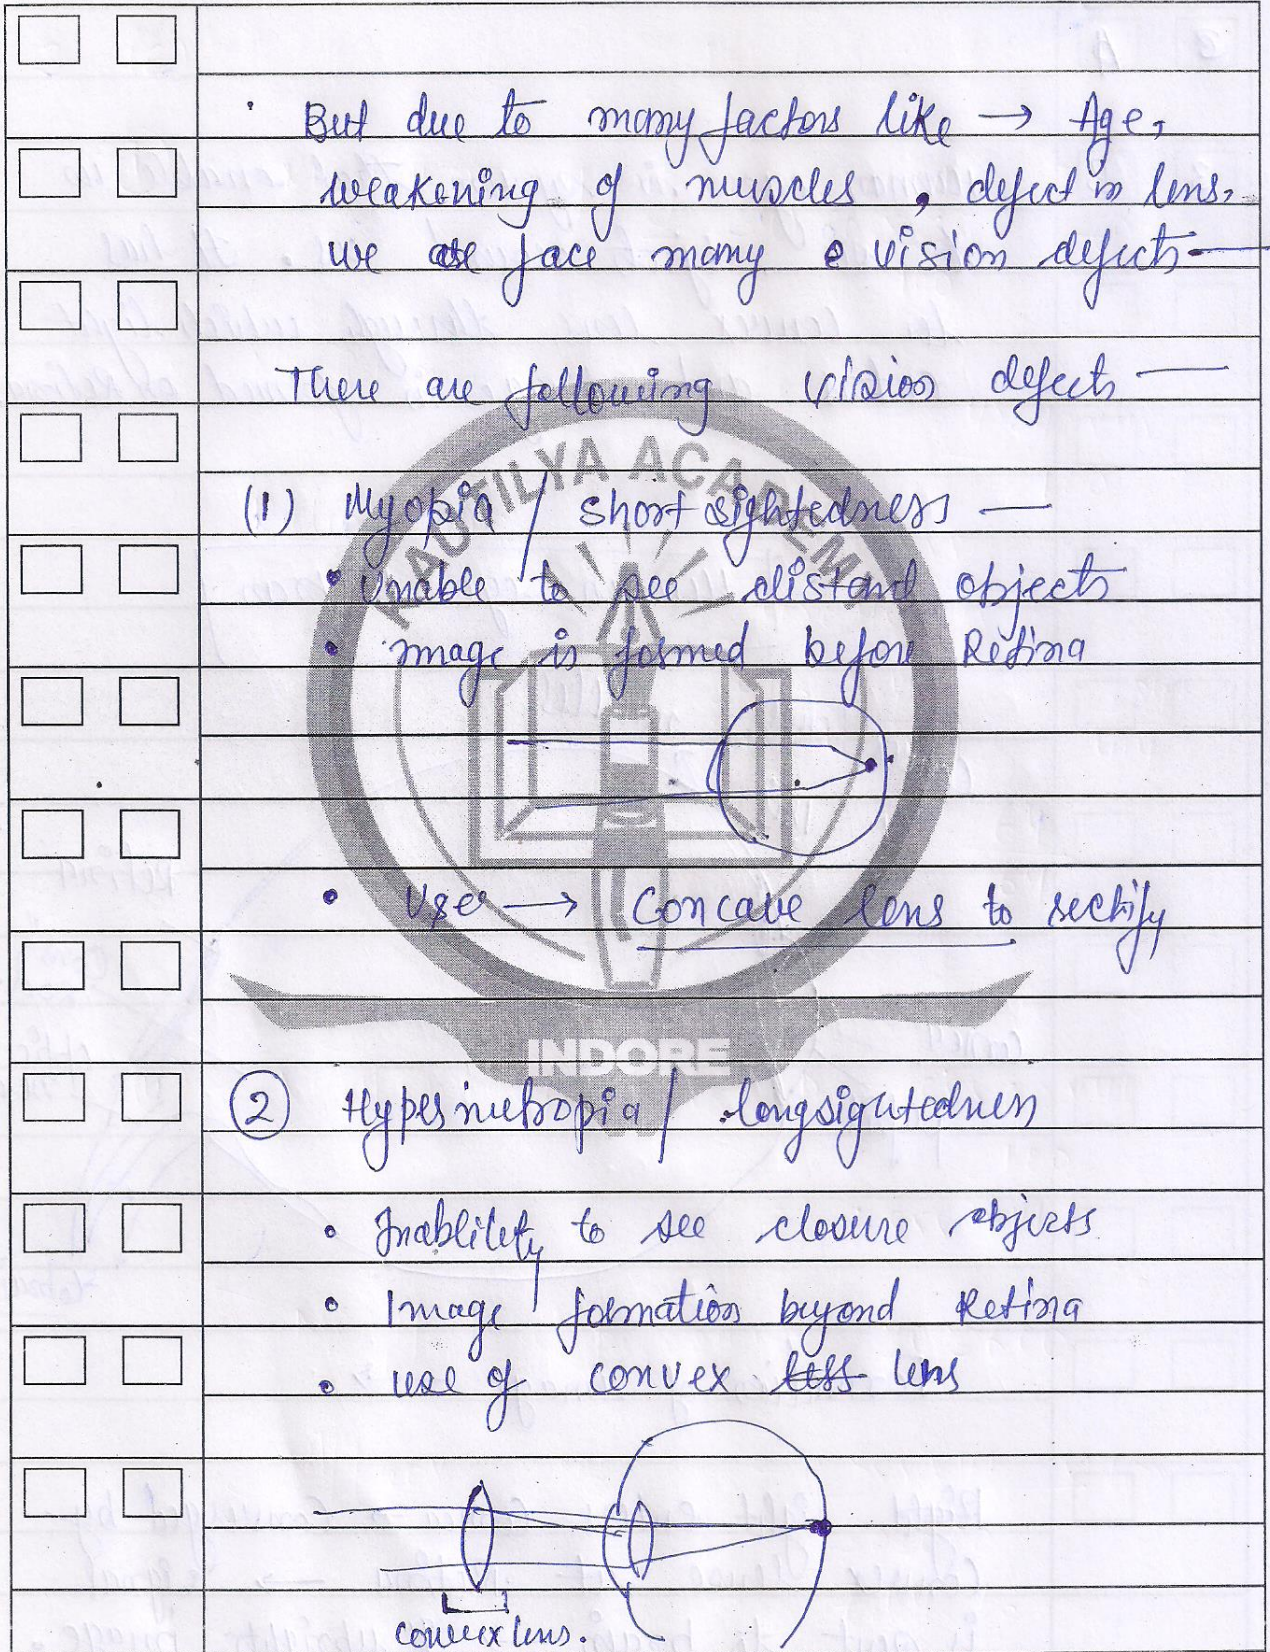 · But due to many factors like → Age,
weakening of muscles, defect in lens,
we face many vision defects —
There are following vision defects —
(1) Myopia / short sightedness —
• Unable to see distand objects
• image is formed before Retina
• Use → Concave lens to rectify
(2) Hypermetropia / longsightedness
• Inablility to see closure objects
• Image formation beyond Retina
• use of convex lens
convex lens.
KAUTILYA ACADEMY
INDORE